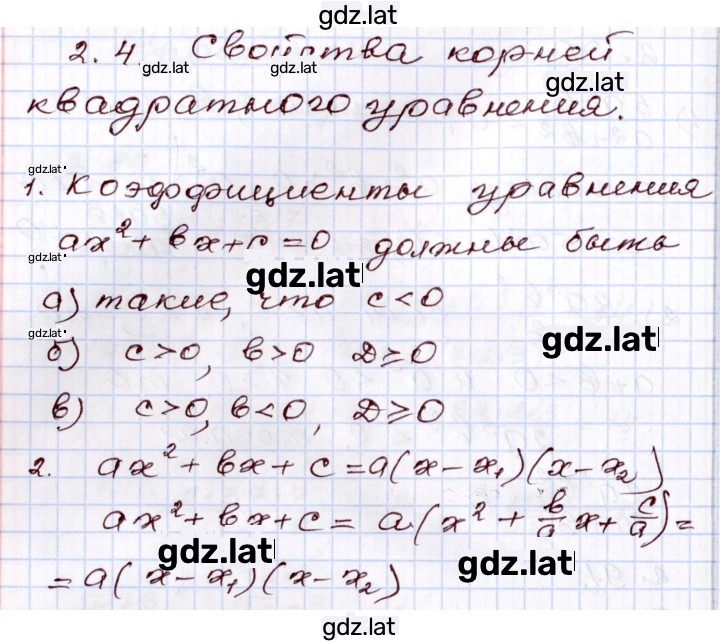 gdz.lat
2.4 Свойства корней
gdz.lat gdz.lat gdz.lat
квадратного уравнения.
gdz.lat
1. Коэффициенты уравнения
ax² + bx + c = 0 должны быть
gdz.lat gdz.lat
а) такие, что c < 0
gdz.lat gdz.lat
б) c > 0, b > 0 D ≥ 0
в) c > 0, b < 0, D ≥ 0
2. ax² + bx + c = a(x - x₁)(x - x₂)
ax² + bx + c = a·(x² + b/a x + c/a) =
gdz.lat gdz.lat
= a(x - x₁)(x - x₂)
gdz.lat